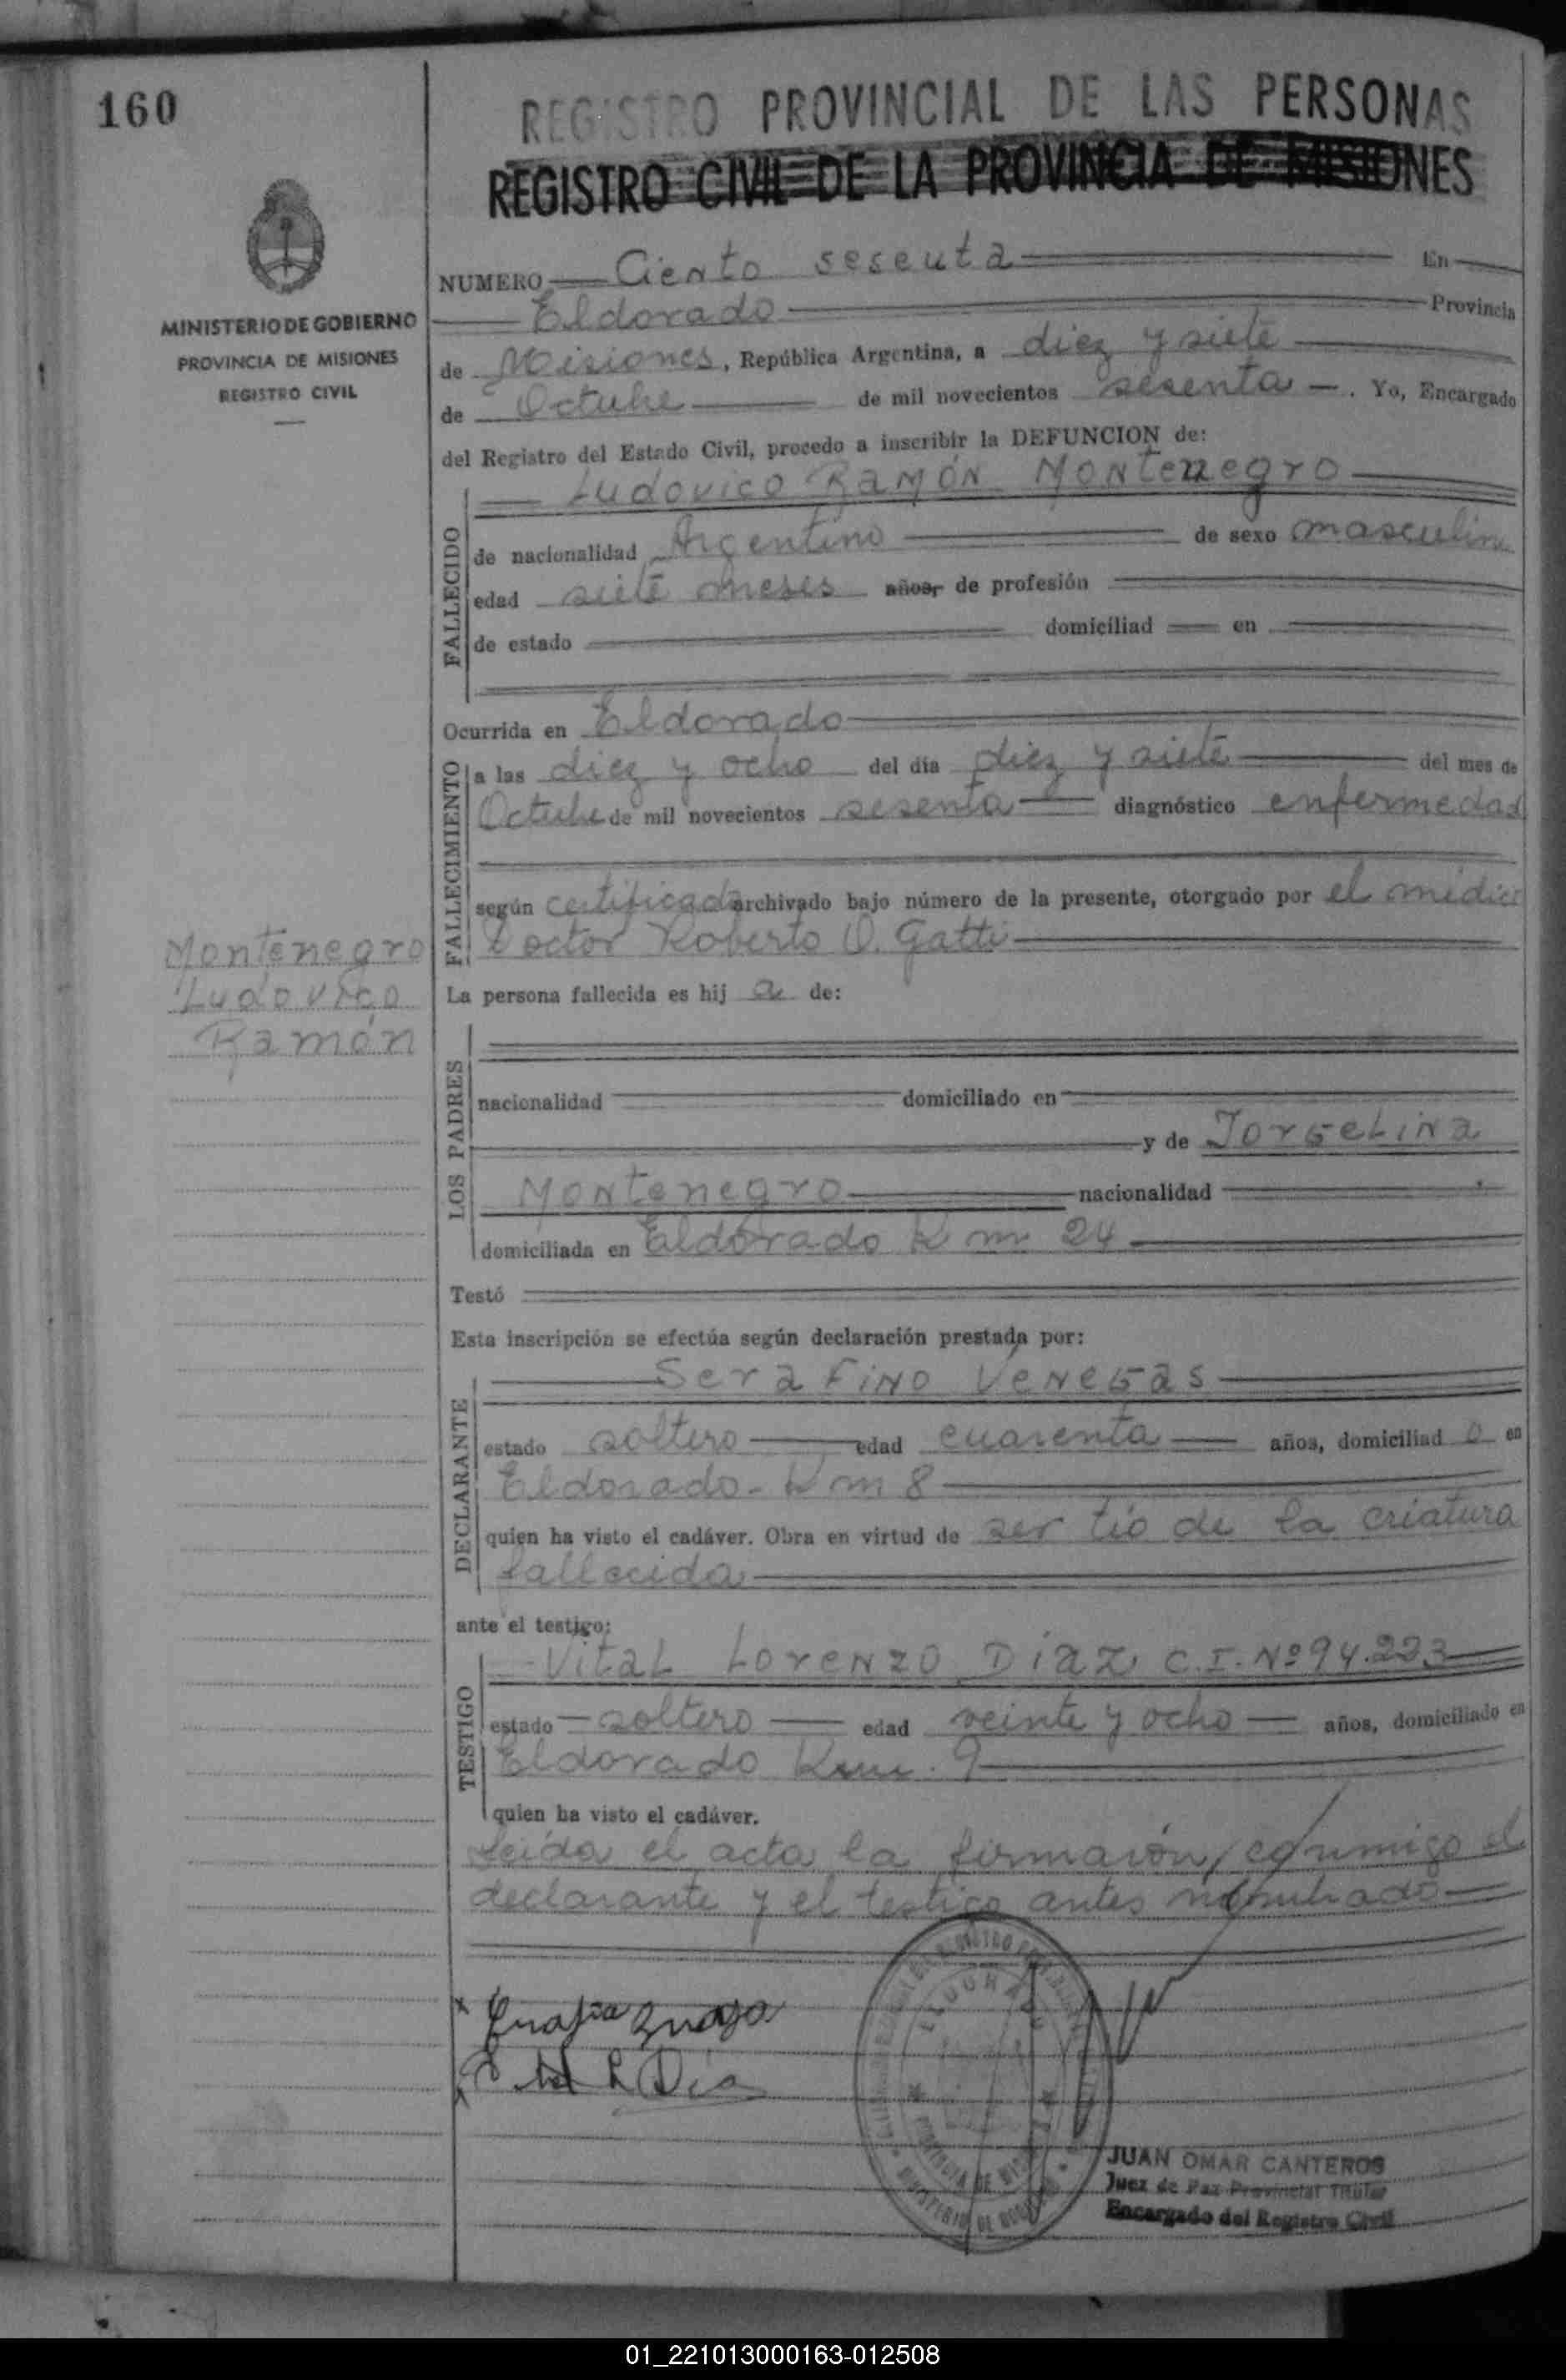 160
REGISTRO PROVINCIAL DE LAS PERSONAS
REGISTRO CIVIL DE LA PROVINCIA DE MISIONES
MINISTERIO DE GOBIERNO
PROVINCIA DE MISIONES
REGISTRO CIVIL
NUMERO Ciento sesenta En
Eldorado Provincia
de Misiones, República Argentina, a diez y siete
de Octubre de mil novecientos sesenta. Yo, Encargado
del Registro del Estado Civil, procedo a inscribir la DEFUNCION de:
FALLECIDO
Ludovico Ramón Montenegro
de nacionalidad Argentino de sexo masculino
edad siete meses años, de profesión
de estado domiciliad en
Ocurrida en Eldorado
FALLECIMIENTO
a las diez y ocho del día diez y siete del mes de
Octubre de mil novecientos sesenta diagnóstico enfermedad
según certificado archivado bajo número de la presente, otorgado por el médico
Doctor Roberto O. Gatti
Montenegro
Ludovico
Ramón
La persona fallecida es hij a de:
LOS PADRES
nacionalidad domiciliado en
y de Jorgelina
Montenegro nacionalidad
domiciliada en Eldorado Km 24
Testó
Esta inscripción se efectúa según declaración prestada por:
DECLARANTE
Serafino Venegas
estado soltero edad cuarenta años, domiciliad o en
Eldorado - Km 8
quien ha visto el cadáver. Obra en virtud de ser tío de la criatura
fallecida
ante el testigo:
TESTIGO
Vital Lorenzo Díaz C.I. Nº 94.223
estado soltero edad veinte y ocho años, domiciliado en
Eldorado Km. 9
quien ha visto el cadáver.
Leída el acta la firmaron conmigo el
declarante y el testigo antes nombrado
JUAN OMAR CANTEROS
Juez de Paz Provincial Titular
Encargado del Registro Civil
01_221013000163-012508